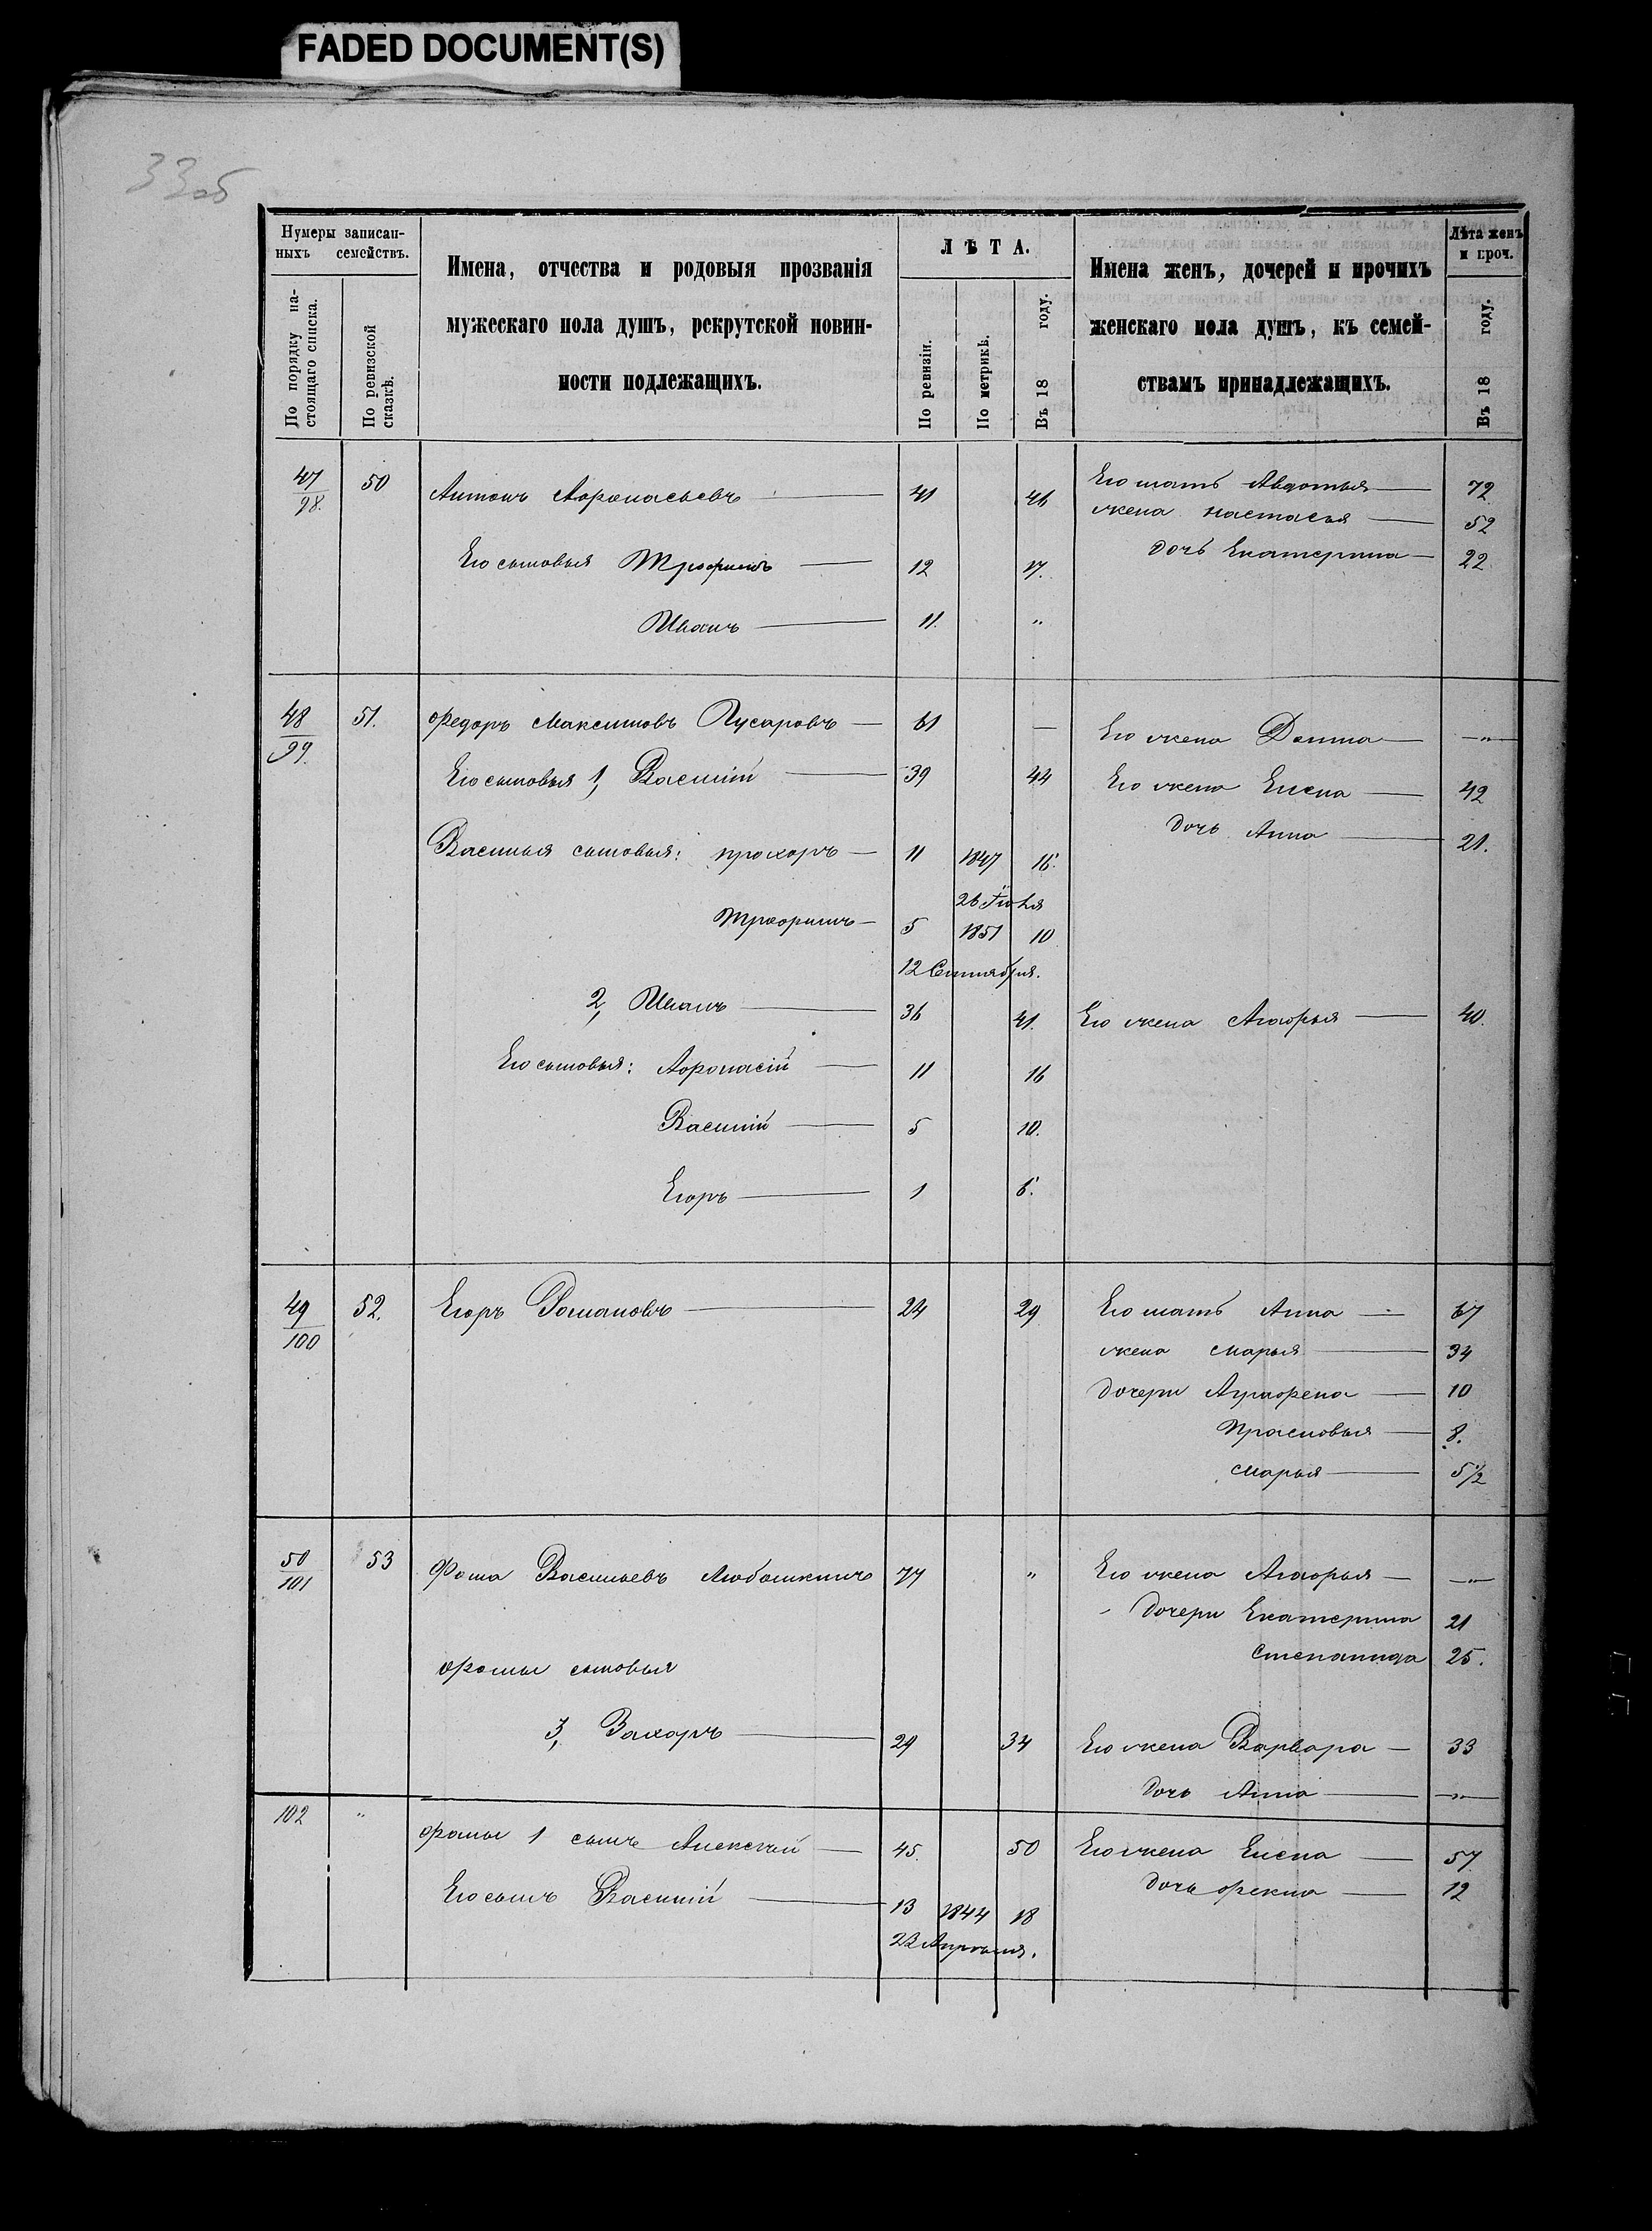 FADED DOCUMENT(S)
33об
Нумеры записан-
ныхъ семействъ.
По порядку на-
стоящаго списка.
По ревизской
сказкѣ.
Имена, отчества и родовыя прозванія
мужескаго пола душъ, рекрутской повин-
ности подлежащихъ.
ЛѢТА.
По ревизіи.
По метрикѣ.
Въ 18 году.
Имена женъ, дочерей и прочихъ
женскаго пола душъ, къ семей-
ствамъ принадлежащихъ.
Лѣта женъ
и проч.
Въ 18 году.
47/98. 50 Антонъ Афонасьевъ — 41 46 Его мать Авдотья — 72
жена Настасья — 52
Его сыновья Трофимъ — 12 17. дочь Екатерина — 22
Иванъ — 11. "
48/99. 51. Федоръ Максимовъ Гусаровъ — 61 — Его жена Домна — "
Его сыновья 1, Василій — 39 44 Его жена Елена — 42
дочь Анна — 21.
Василья сыновья: Прохоръ — 11 1847 16.
26 Іюля
Трофимъ — 5 1851 10
12 Сентября.
2, Иванъ — 36 41. Его жена Агафья — 40.
Его сыновья: Афонасій — 11 16
Василій — 5 10.
Егоръ — 1 6.
49/100 52. Егоръ Романовъ — 24 29 Его мать Анна — 67
жена Марья — 34
дочери Аграфена — 10
Прасковья — 8.
Марья — 5 1/2
50/101 53 Фома Васильевъ 77 " Его жена Агафья — "
дочери Екатерина 21
Степанида 25.
Фомы сыновья
3, Захаръ — 29 34 Его жена Варвара — 33
дочь Анна — "
102 " Фомы 1 сынъ Алексѣй — 45. 50 Его жена Елена — 57.
Его сынъ Василій — 13 1844 18 дочь Фекла — 12
22 Апрѣля.